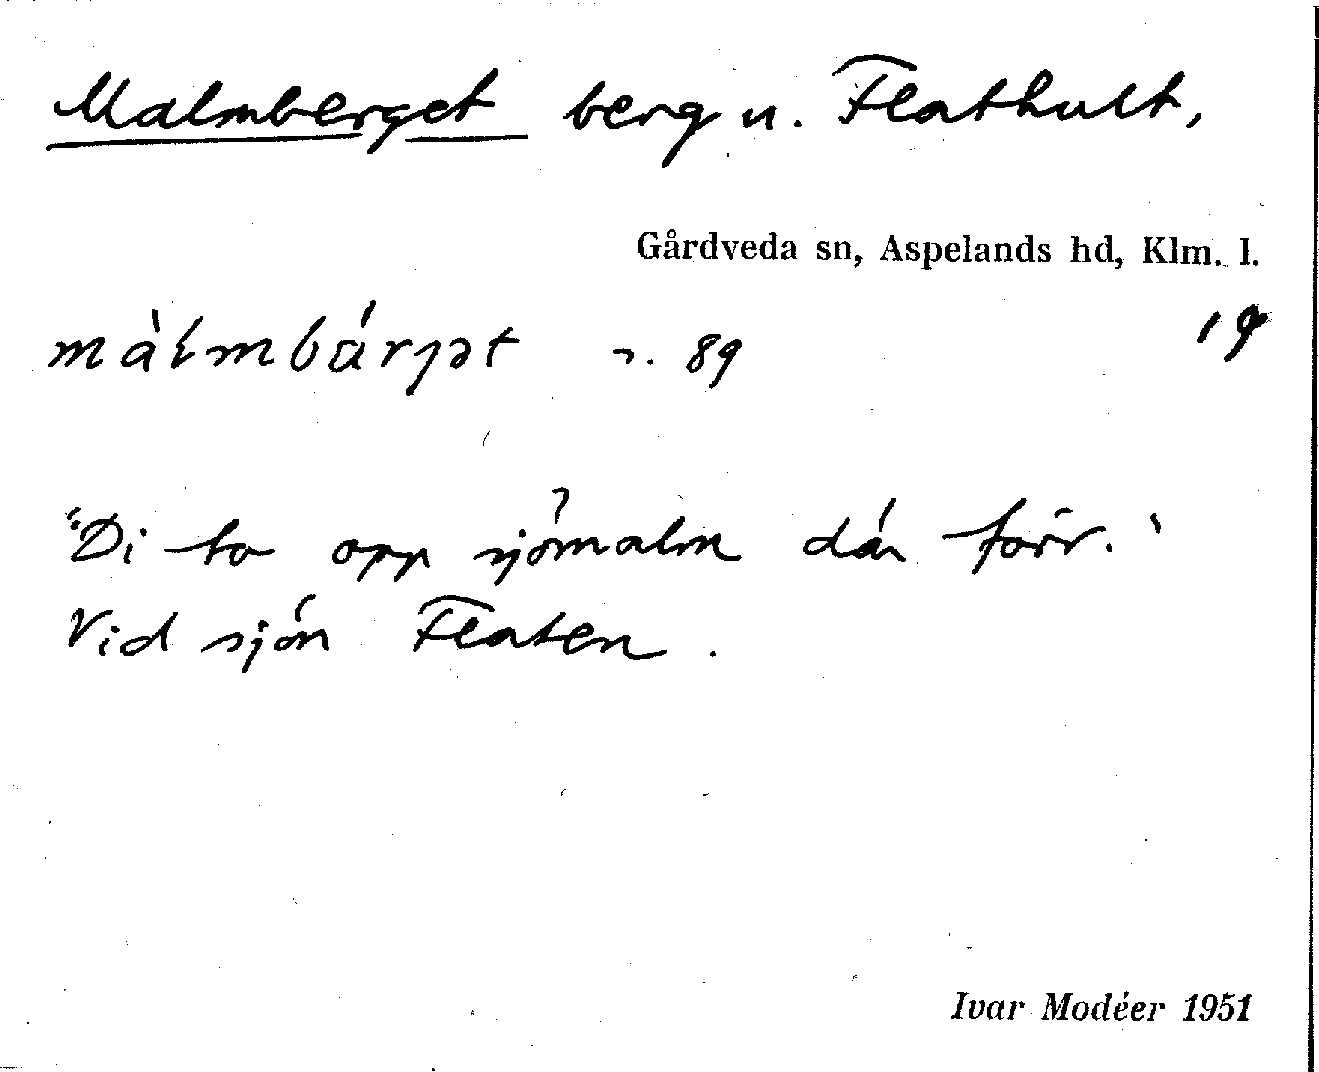 Malmberget berg u. Flathult,
Gårdveda sn, Aspelands hd, Klm. l.
màlmbárjət n. 89
"Di to opp sjömalm där förr."
Vid sjön Flaten.
Ivar Modéer 1951